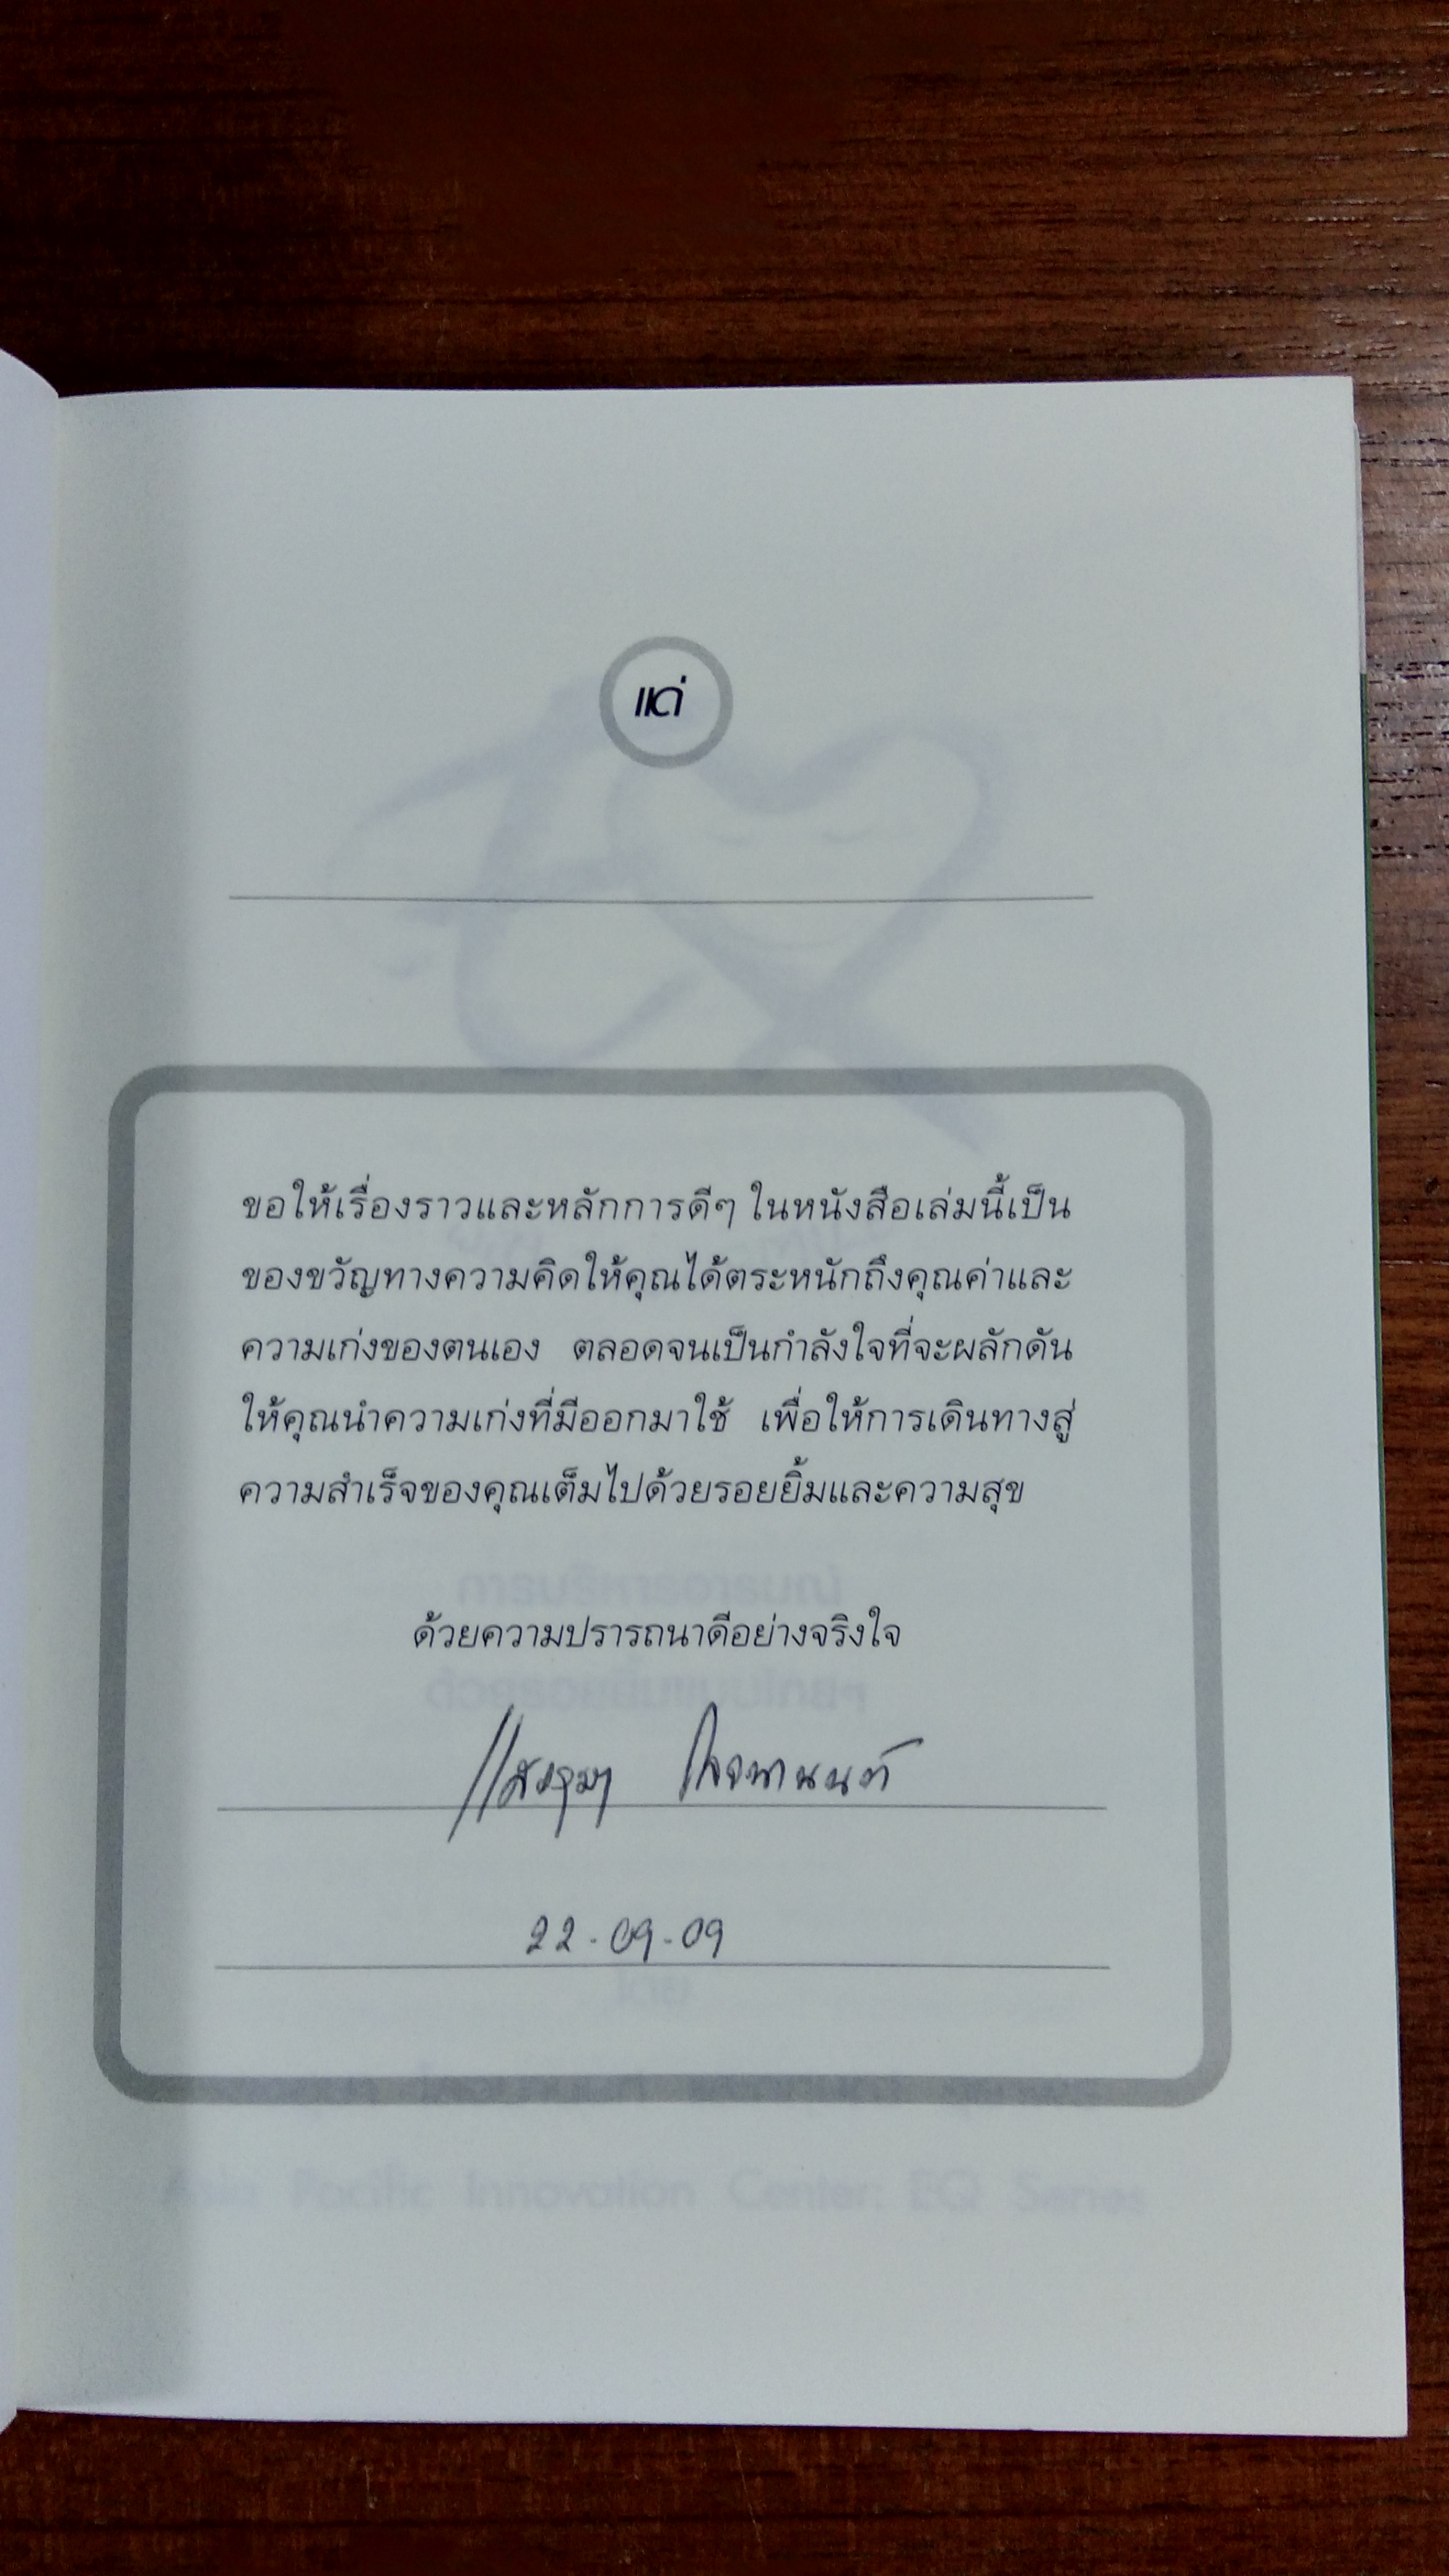 แด่
ขอให้เรื่องราวและหลักการดีๆ ในหนังสือเล่มนี้เป็น
ของขวัญทางความคิดให้คุณได้ตระหนักถึงคุณค่าและ
ความเก่งของตนเอง ตลอดจนเป็นกำลังใจที่จะผลักดัน
ให้คุณนำความเก่งที่มีออกมาใช้ เพื่อให้การเดินทางสู่
ความสำเร็จของคุณเต็มไปด้วยรอยยิ้มและความสุข
ด้วยความปรารถนาดีอย่างจริงใจ
22-09-09